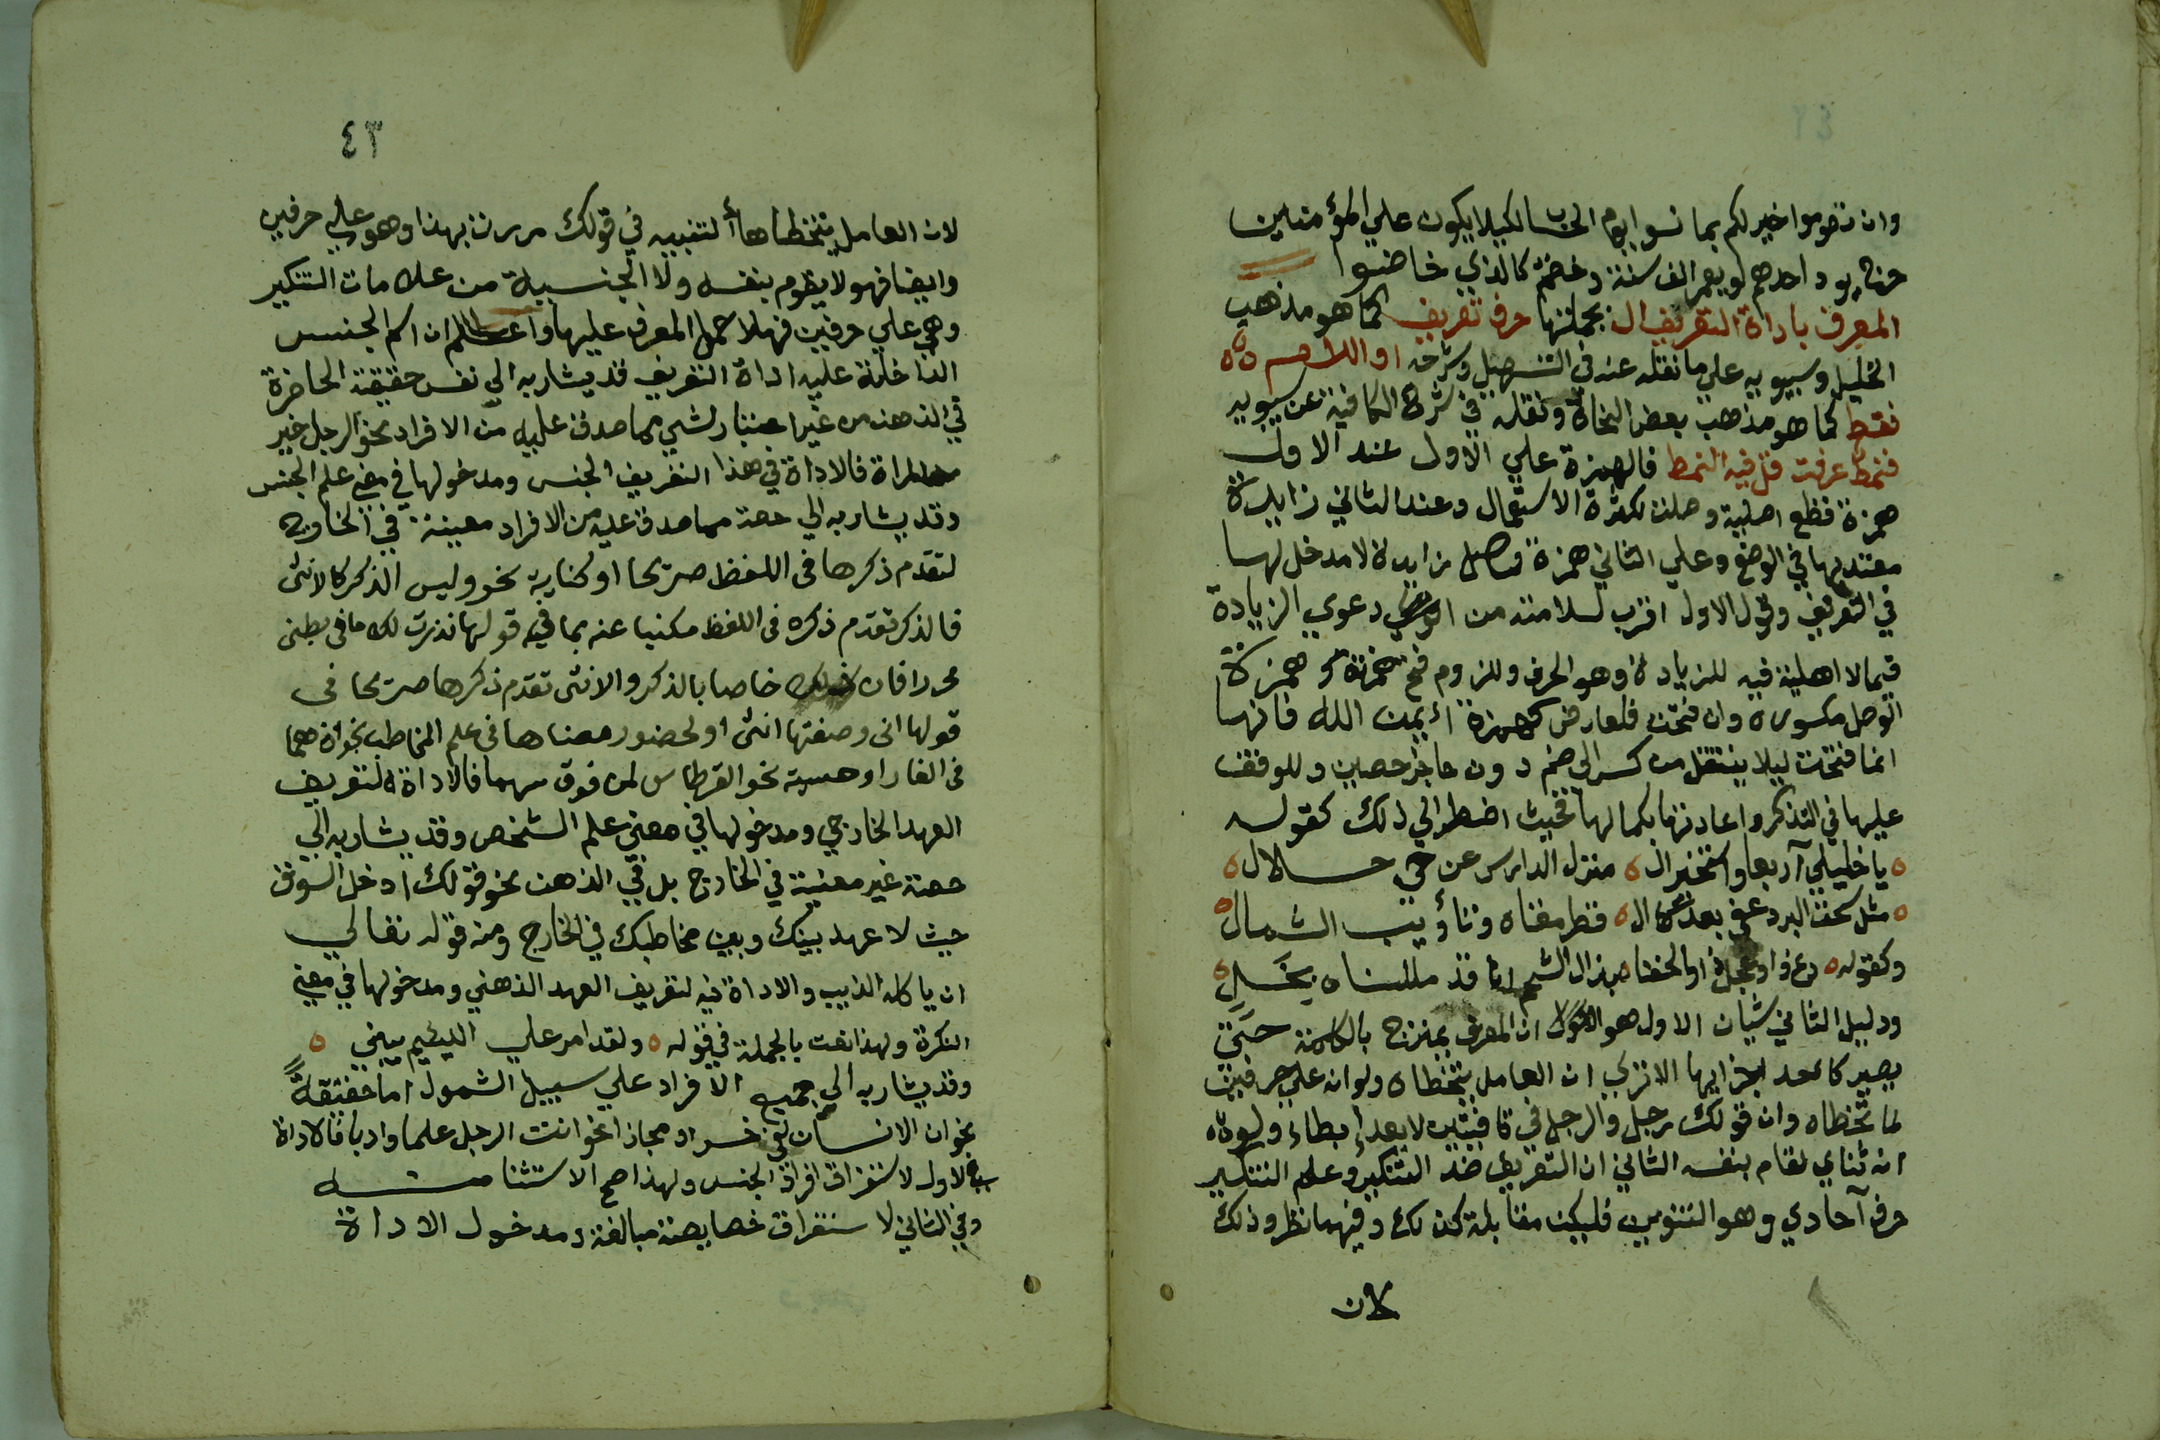 وان تصوموا خير لكم بما نسوا يوم الحساب لكيلا يكون علي المؤمنين
حرج يود احدهم لو يعمر الف سنة وخضتم كالذي خاضوا
المعرف باداة التعريف ال بجملتها حرف تعريف كما هو مذهب
الخليل وسيبويه علي ما نقله عنه في التسهيل وشرحه او اللام
فقط كما هو مذهب بعض النحاة ونقله في شرح الكافية عن سيبويه
فنمط عرفت قل فيه النمط فالهمزة علي الاول عند الاول
همزة قطع اصلية وصلت لكثرة الاستعمال وعند الثاني زايدة
معتد بها في الوضع وعلي الثاني همزة وصل زايدة لا مدخل لها
في التعريف وقول الاول اقرب لسلامته من دعوي الزيادة
فيما لا اهلية فيه للزيادة وهو الحرف وللزوم فتح همزته وهمزة
الوصل مكسورة وان فتحت فلعارض كهمزة أيمن الله فانها
انما فتحت ليلا ينتقل من كسر الى ضم دون حاجز حصين وللوقف
عليها في التذكر واعادتها بكمالها حيث اضطر الي ذلك كقوله
يا خليلي آربعا واستخبرا ال منزل الدارس عن حي حلال
مثل سحق البرد عفي بعدك ال قطر مغناه وتأويب الشمال
وكقوله دع ذا وعجل ذا والحقنا بذا ال الشحم انا قد مللناه بجل
ودليل الثاني شيان الاول هو ان المعرف يمتزج بالكلمة حتي
يصير كاحد اجزايها الا تري ان العامل يتخطاه ولو انه علي حرفين
لما تخطاه وان قولك رجل والرجل في قافيتين لا يعد إبطاء ولو
انه ثناي لقام بنفسه الثاني ان التعريف ضد التنكير وعلم التنكير
حرف آحادي وهو التنوين فليكن مقابله كذلك وفيهما نظر وذلك
لان
٤٣
لان العامل يتخطا ها ألتنبيه في قولك مررت بهذا وهو علي حرفين
وايضا فهو لا يقوم بنفسه ولا الجنسية من علامات التنكير
وهي علي حرفين فهلا حمل المعرف عليها واعلم ان اسم الجنس
الداخلة عليه اداة التعريف قد يشار به الي نفس حقيقته الحاضرة
في الذهن من غير اعتبار لشي مما صدق عليه من الافراد نحو الرجل خير
من المراة فالاداة في هذا التعريف الجنس ومدخولها في معني علم الجنس
وقد يشار به الي حصة مما صدق عليه من الافراد معينة في الخارج
لتقدم ذكرها فى اللفظ صريحا او كناية نحو وليس الذكر كالانثى
فالذكر تقدم ذكره فى اللفظ مكنيا عنه بما في قولها نذرت لك ما فى بطنى
محررا فان ذلك خاصا بالذكر والانثى تقدم ذكرها صريحا فى
قولها انى وضعتها انثى او لحضور معناها فى علم المخاطب نحو اذ هما
فى الغار او حسه نحو القرطاس لمن فوق سهما فالاداة لتعريف
العهد الخارجي ومدخولها في معني علم الشخص وقد يشار به الي
حصة غير معينة في الخارج بل في الذهن نحو قولك ادخل السوق
حيث لا عهد بينك وبين مخاطبك في الخارج ومنه قوله تعالي
ان ياكله الذيب والاداة فيه لتعريف العهد الذهني ومدخولها في معني
النكرة ولهذا نعت بالجملة في قوله ولقد امر علي الليئيم يسبني
وقد يشار به الي جميع الافراد علي سبيل الشمول اما حقيقةً
نحو ان الانسان لفي خسر او مجازا نحو انت الرجل علما وادبا فالاداة
في الاول لاستغراق افراد الجنس ولهذا صح الاستثنا منه
وفي الثاني لاستغراق خصايصه مبالغة ومدخول الاداة